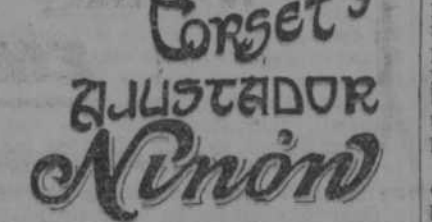 Corset
AJUSTADOR
Ninón